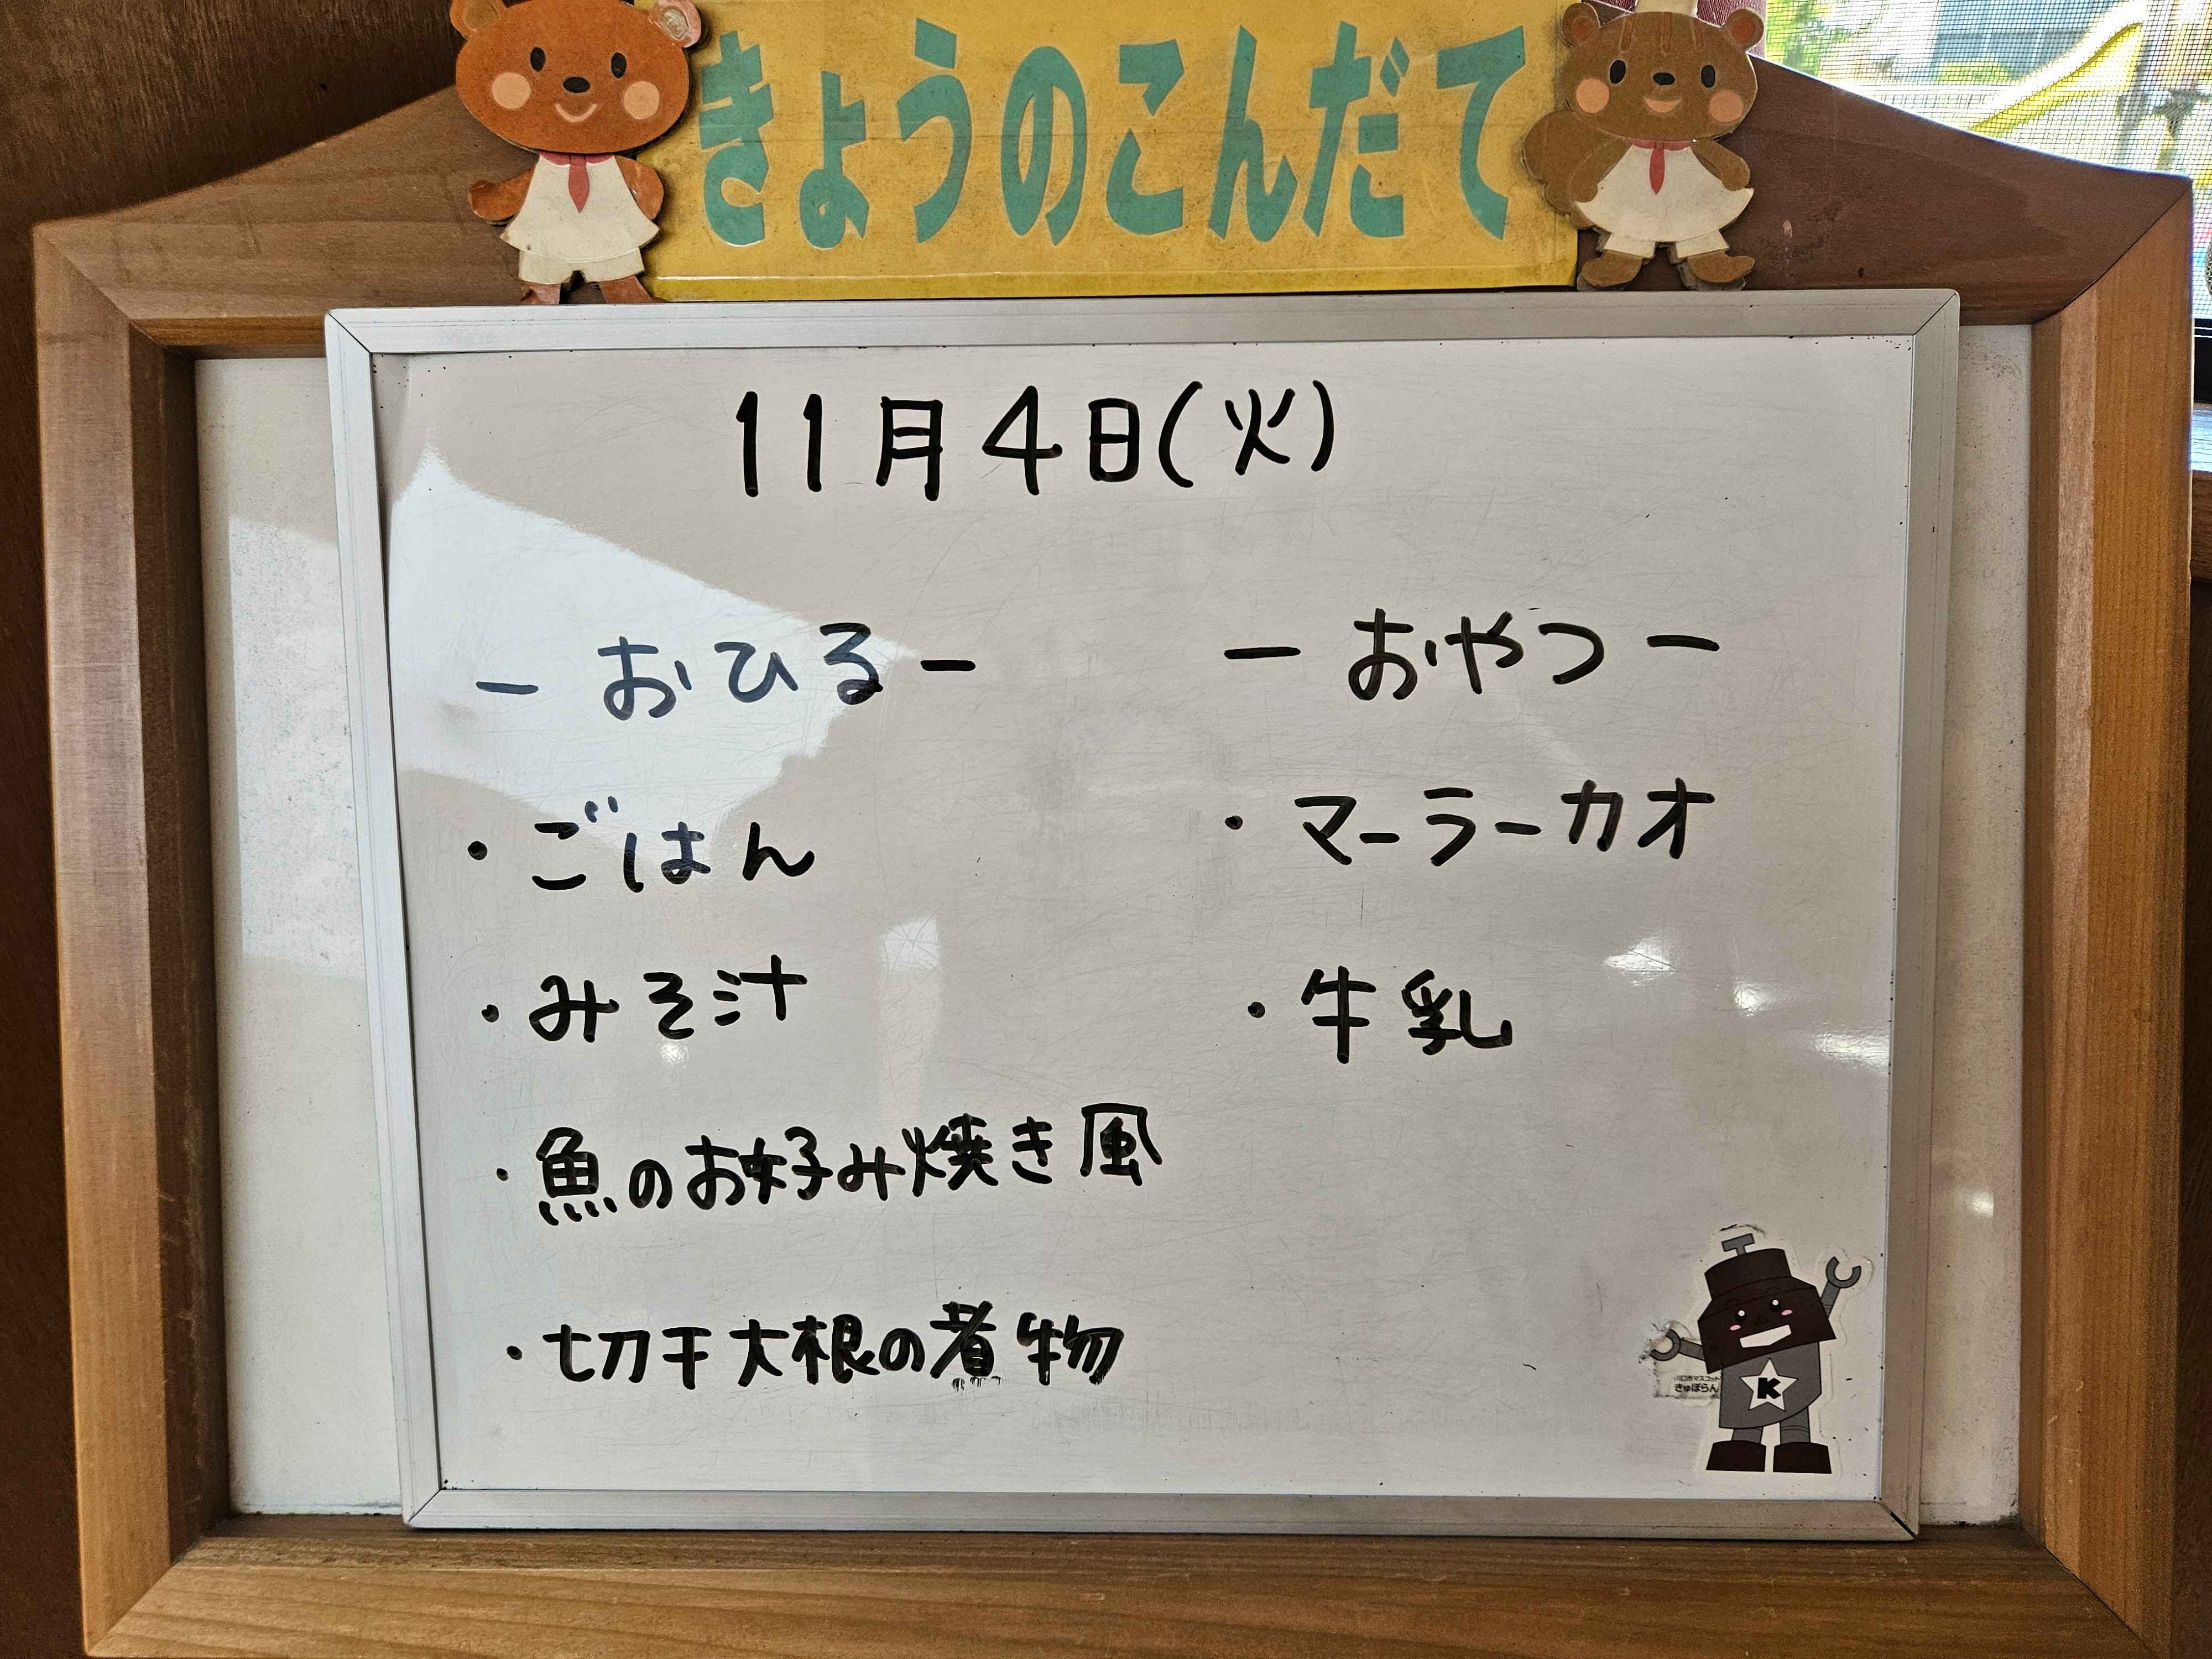 きょうのこんだて
11月4日(火)
ー おひる ー
・ごはん
・みそ汁
・魚のお好み焼き風
・切干大根の煮物
ー おやつ ー
・マーラーカオ
・牛乳
川口市マスコット
きゅぽらん
K